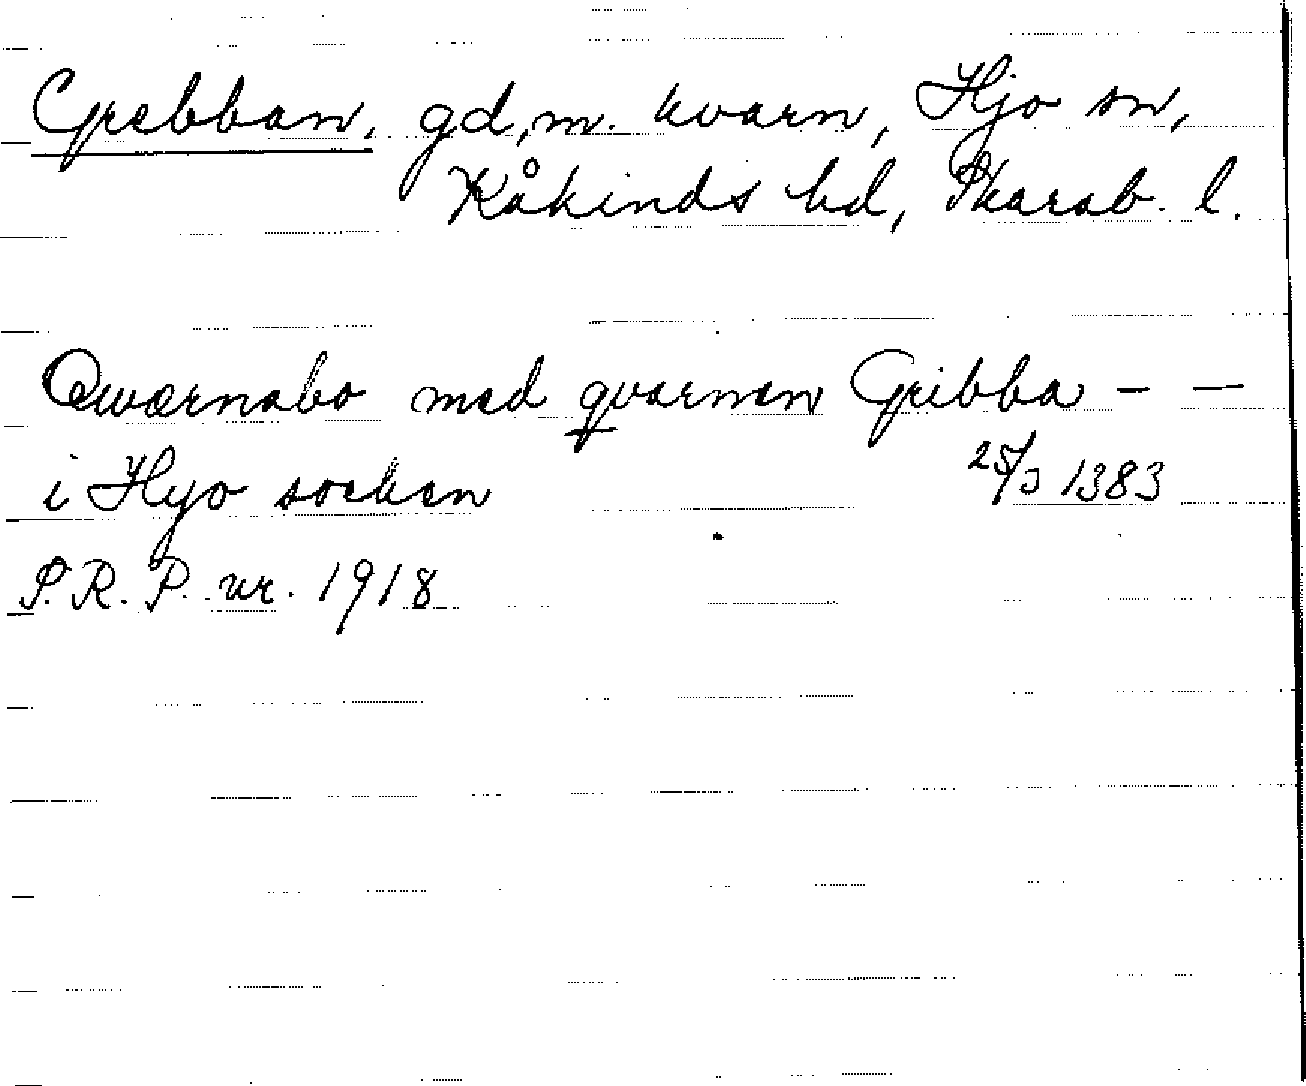 Grebban, gd, m. kvarn, Hjo sn,
Kåkinds hd, Skarab. l.
Qwærnabo med qvarnen Gribba - -
i Hyo socken 25/3 1383
S.R.P. nr. 1918